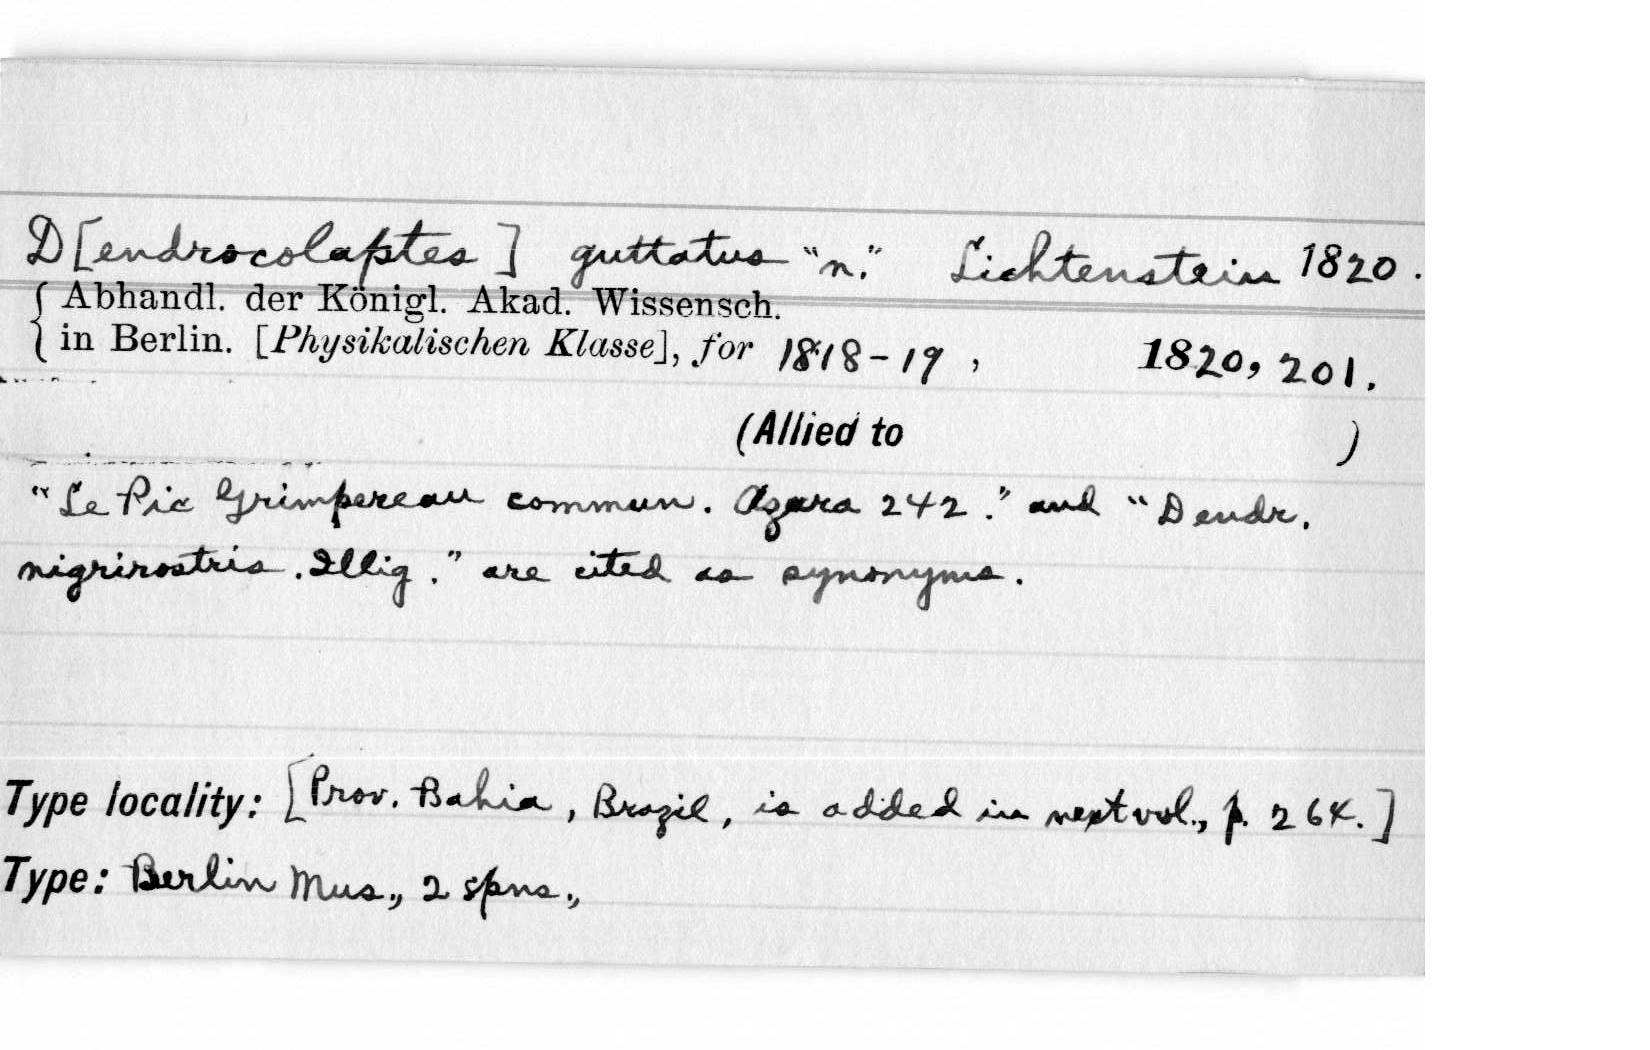 D[endrocolaptes] guttatus "n." Lichtenstein 1820.
Abhandl. der Königl. Akad. Wissensch.
in Berlin. [Physikalischen Klasse], for 1818-19, 1820, 201.
(Allied to )
"Le Pic Grimpereau commun. Azara 242." and "Dendr.
nigrirostris. Illig." are cited as synonyms.
Type locality: [Prov. Bahia, Brazil, is added in next vol., p. 264.]
Type: Berlin Mus., 2 spns.,